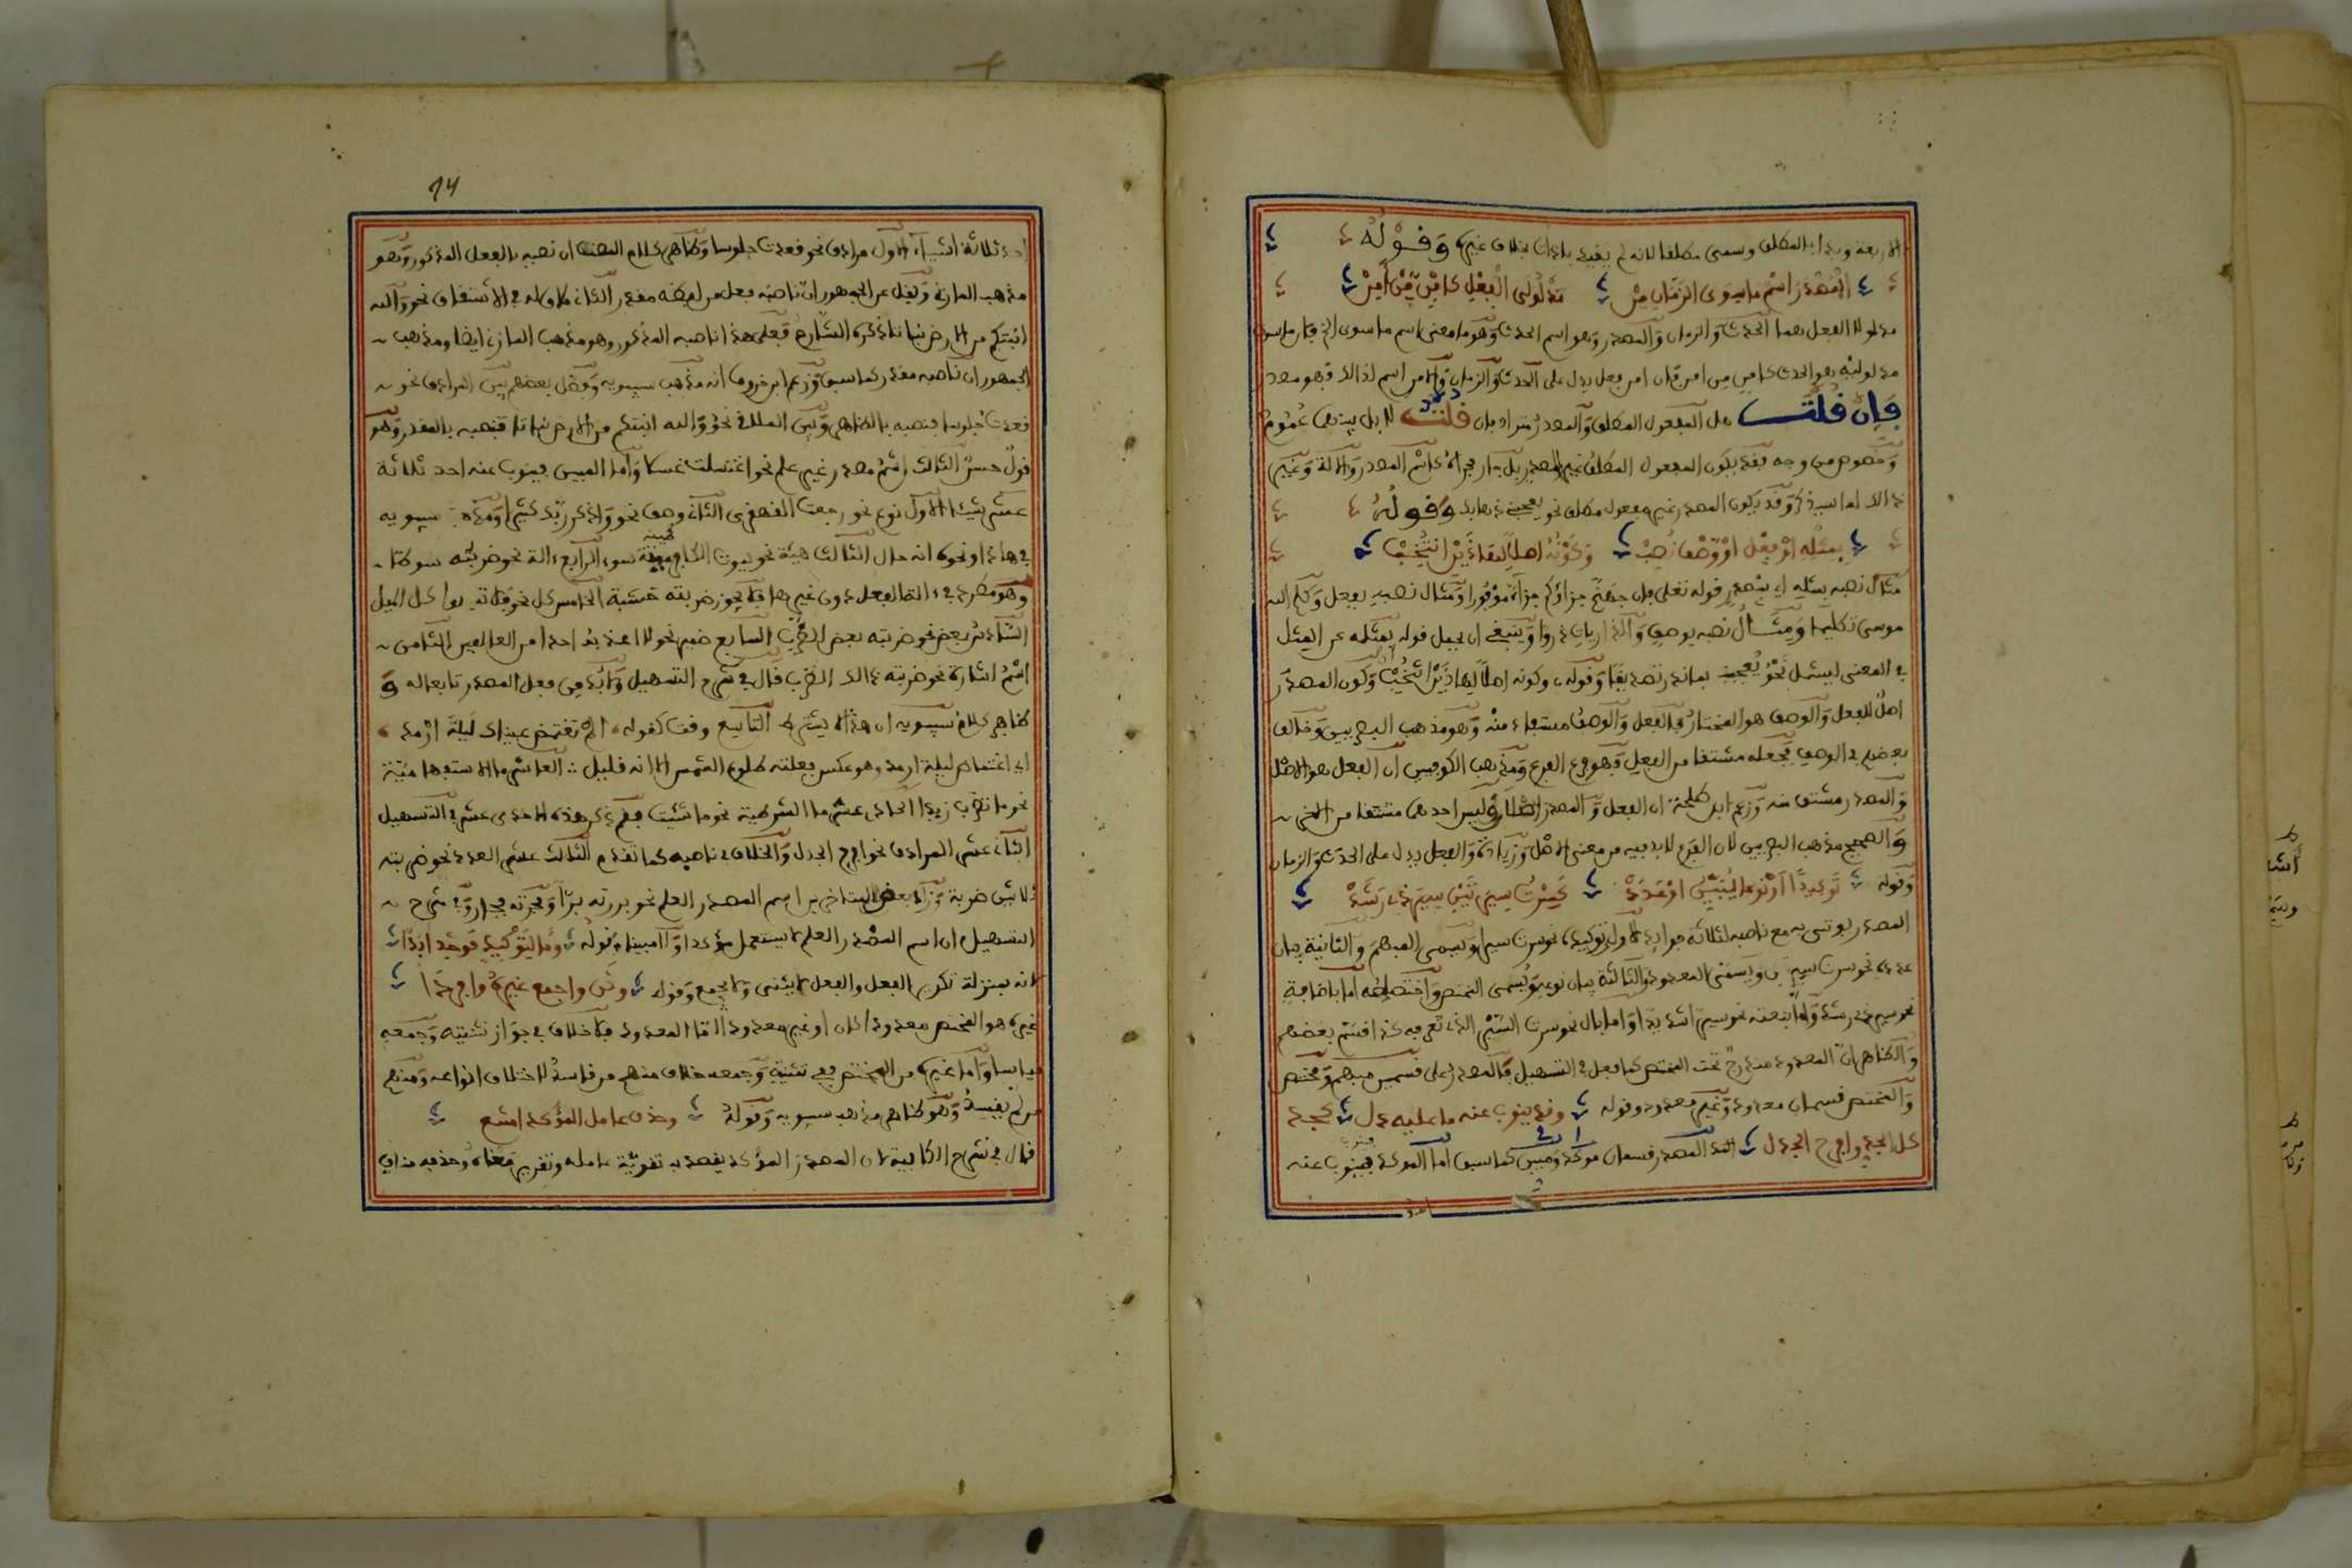 الاربعة وبدا بالمطلق وسمى مطلقا لانه لم يقيد باداة بخلاف غيره وقوله
المصدر اسم ما سوى الزمان من مدلولي الفعل كامن من امن
مدلولا الفعل هما الحدث والزمان والمصدر وهو اسم الحدث وهو ما معنى اسم ما سوى الزمان من
مدلوليه هو الحدث كامن من امن فان امن فعل يدل على الحدث والزمان والامن اسم لذالك فهو مصدر
فان قلت هل المفعول المطلق والمصدر مترادفان قلت لا بل بينهما عموم
وخصوص من وجه فقد يكون المفعول المطلق غير المصدر بل جار مجراه كاسم المصدر والالة وغير
ذالك لما سيذكر وقد يكون المصدر غير مفعول مطلق نحو يعجبني ذهابك وقوله
بمثله او فعل او وصف نصب وكونه اصلا لهاذين انتخب
مثال نصبه بمثله اي بمصدر قوله تعلى فان جهنم جزاؤكم جزاء موفورا ومثال نصبه بفعل وكلم الله
موسى تكليما ومثال نصبه بوصف والذاريات ذروا وينبغي ان يحمل قوله بمثله عن المثل
في المعنى ليشمل نحو يعجبني ايمانك تصديقا وقوله وكونه اصلا لهاذين انتخب اي وكون المصدر
اصل للفعل والوصف هو المختار فالفعل والوصف مشتقان منه وهو مذهب البصريين وخالف
بعضهم في الوصف فجعله مشتقا من الفعل فهو فرع الفرع ومذهب الكوفيين ان الفعل هو الاصل
والمصدر مشتق منه وزعم ابن طلحة ان الفعل والمصدر اصلان وليس احدهما مشتقا من الاخر
والصحيح مذهب البصريين لان الفرع لابد فيه من معنى الاصل وزيادة والفعل يدل على الحدث والزمان
وقوله توكيدا او نوعا يبين او عدد كسرت سيرتين سير ذي رشد
المصدر يوتى به مع ناصبه لثلاثة فوايد الاولى توكيده نحو سرت سيرا ويسمى المبهم والثانية بيان
عدده نحو سرت سيرتين ويسمى المعدود والثالثة بيان نوعه ويسمى المختص واختصاصه اما باضافة
نحو سير ذي رشد واما بنعته نحو سيرا شديدا واما بال نحو سرت السير الذي تعرفه كذا قسم بعضهم
والظاهر ان المعدود مندرج تحت المختص كما فعل في التسهيل فالمصدر على قسمين مبهم ومختص
والمختص قسمان معدود وغير معدود وقوله وقد ينوب عنه ما عليه دل كجد
كل الجد وافرح الجذل المصدر قسمان موكد ومبين كما سبق اما الموكد فينوب عنه
94
احد ثلاثة اشياء الاول مرادف نحو قعدت جلوسا وظاهر كلام المصنف ان نصبه بالفعل المذكور وهو
مذهب المازني ونقل عن الجمهور ان ناصبه فعل من لفظه مقدر الثاني ملاق له في الاشتقاق نحو والله
انبتكم من الارض نباتا ذكره الشارح فعلى هذا ناصبه المذكور وهو مذهب المازني ايضا ومذهب
الجمهور ان ناصبه مقدر كما سبق وزعم ابن خروف انه مذهب سيبويه وفصل بعضهم بين المرادف نحو
قعدت جلوسا فنصبه بالظاهر وبين الملاقي نحو والله انبتكم من الارض نباتا فنصبه بالمقدر وهو
قول حسن الثالث اسم مصدر غير علم نحو اغتسلت غسلا واما المبين فينوب عنه احد ثلاثة
عشر شيئا الاول نوع نحو رجعت القهقرى الثاني وصف نحو واذكر ربك كثيرا ومذهب سيبويه
في هاذا ونحوه انه حال الثالث هيئة نحو يموت الكافر ميتة سوء الرابع الة نحو ضربته سوطا
وهو مطرد في الة الفعل دون غيرها فلا يجوز ضربته خشبة الخامس كل نحو فلا تميلوا كل الميل
السادس بعض نحو ضربته بعض الضرب السابع ضمير نحو لا اعذبه احدا من العالمين الثامن
اسم اشارة نحو ضربته ذالك الضرب قال في شرح التسهيل ولابد من جعل المصدر تابعا له و
ظاهر كلام سيبويه ان هذا لا يشترط التاسع وقت كقوله الم تغتمض عيناك ليلة ارمد
اي اغتماض ليلة ارمد وهو عكس فعلته طلوع الشمس الا انه قليل العاشر ما الاستفهامية
نحو ما تضرب زيدا الحادي عشر ما الشرطية نحو ما شئت فقم ذكر هذه الاحدى عشر في التسهيل
الثاني عشر المرادف نحو افرح الجذل والخلاف في ناصبه كما تقدم الثالث عشر العدد نحو ضربته
ثلاثين ضربة وزاد بعض المتاخرين اسم المصدر العلم نحو بررته برة وفجرته فجار وفي شرح
التسهيل ان اسم المصدر العلم لا يستعمل موكدا ولا مبينا وقوله وما لتوكيد فوحد ابدا
لانه بمنزلة تكرير الفعل والفعل لا يثنى ولا يجمع وقوله وثن واجمع غيره وافردا
غيره هو المختص معدودا كان او غير معدود اما المعدود فلا خلاف في جواز تثنيته وجمعه
قياسا واما غيره من المختص ففي تثنيته وجمعه خلاف منهم من قاسه لاختلاف انواعه ومنهم
من لم يقسه وهو ظاهر مذهب سيبويه وقوله وحذف عامل المؤكد امتنع
قال في شرح الكافية لان المصدر المؤكد يقصد به تقوية عامله وتقرير معناه وحذفه مناف